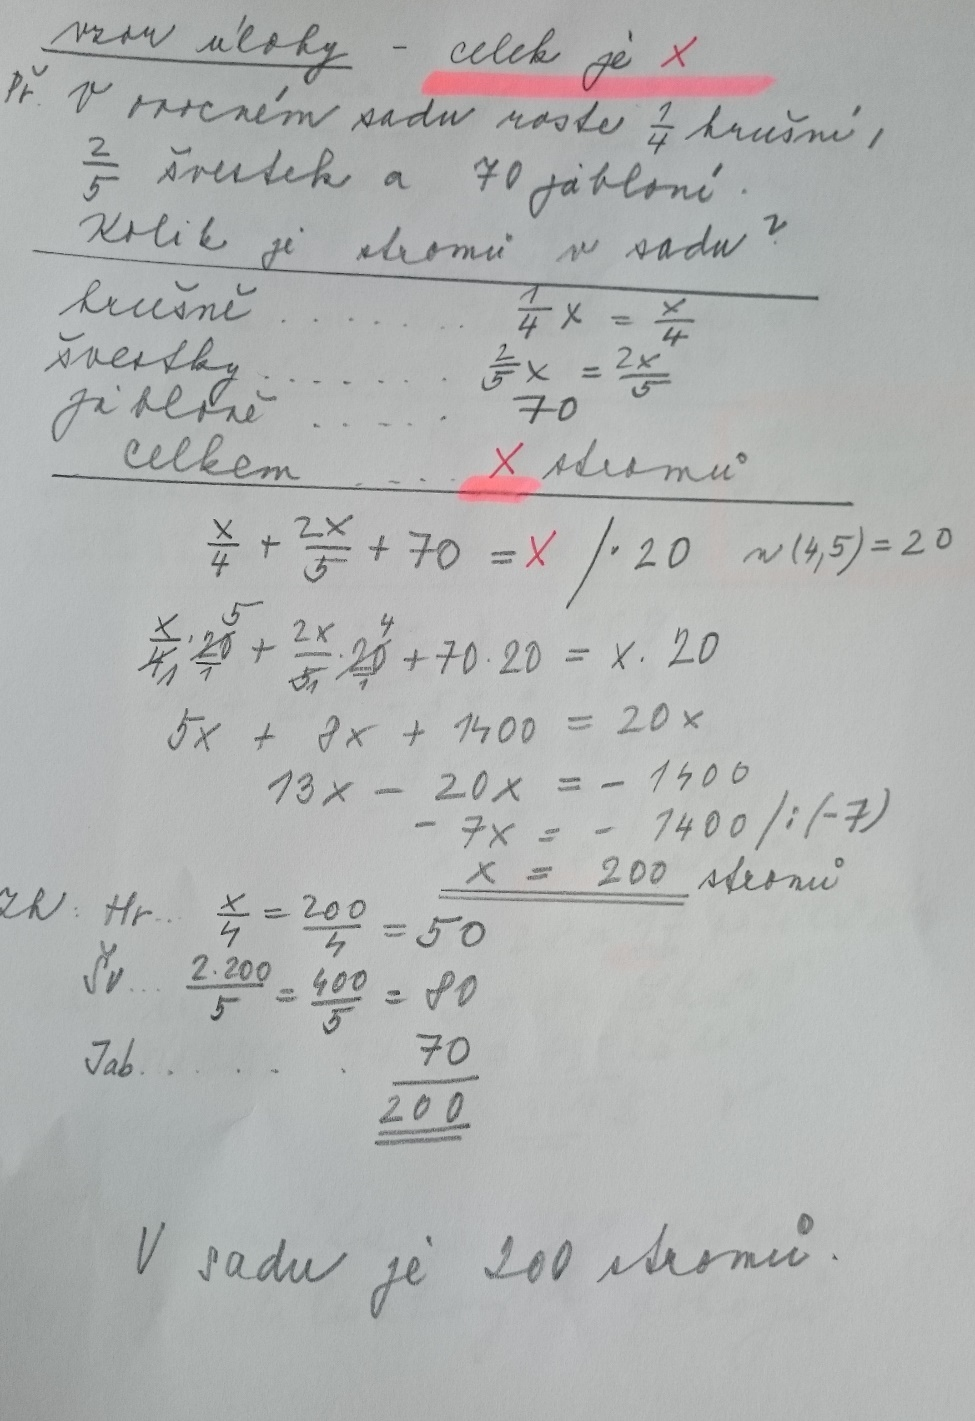 vzor úlohy - celek je x
Př. V ovocném sadu roste 1/4 hrušní,
2/5 švestek a 70 jabloní.
Kolik je stromů v sadu?
hrušně ....... 1/4 x = x/4
švestky ....... 2/5 x = 2x/5
jabloně ..... 70
celkem .... x stromů
x/4 + 2x/5 + 70 = x /· 20 n(4,5) = 20
x/4 · 20 + 2x/5 · 20 + 70 · 20 = x · 20
5x + 8x + 1400 = 20x
13x - 20x = - 1400
- 7x = - 1400 /: (-7)
x = 200 stromů
Zk: Hr... x/4 = 200/4 = 50
Šv... 2·200/5 = 400/5 = 80
Jab...... 70
200
V sadu je 200 stromů.